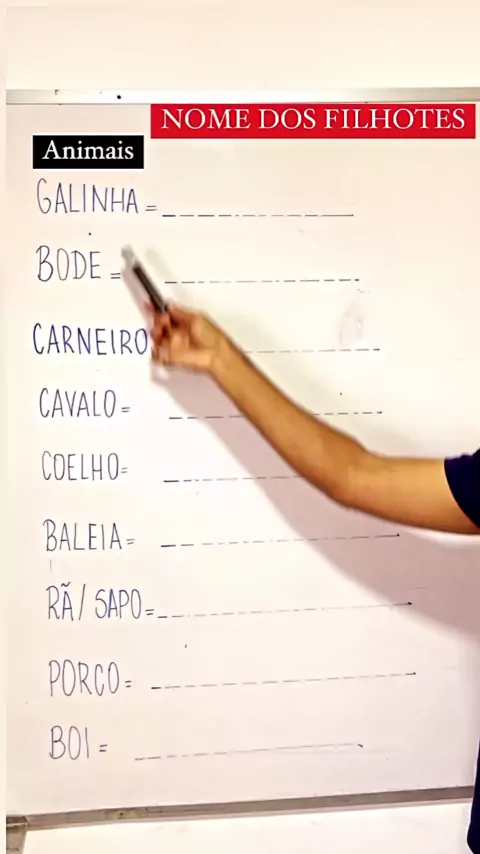 NOME DOS FILHOTES
Animais
GALINHA =
BODE =
CARNEIRO
CAVALO =
COELHO =
BALEIA =
RÃ / SAPO =
PORCO =
BOI =